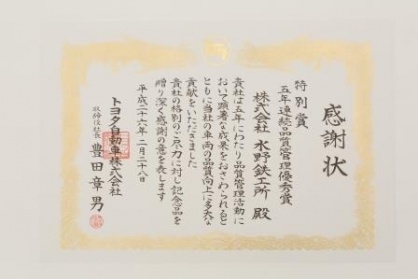 感謝状
特別賞
五年連続品質管理優秀賞
株式会社 水野鉄工所 殿
貴社は五年にわたり品質管理活動に
おいて顕著な成果をおさめられると
ともに当社の車両の品質向上に多大な
貢献をいただきました
貴社の格別のご尽力に対し記念品を
贈り深く感謝の意を表します
平成二十六年 二月二十八日
トヨタ自動車株式会社
取締役社長 豊田章男